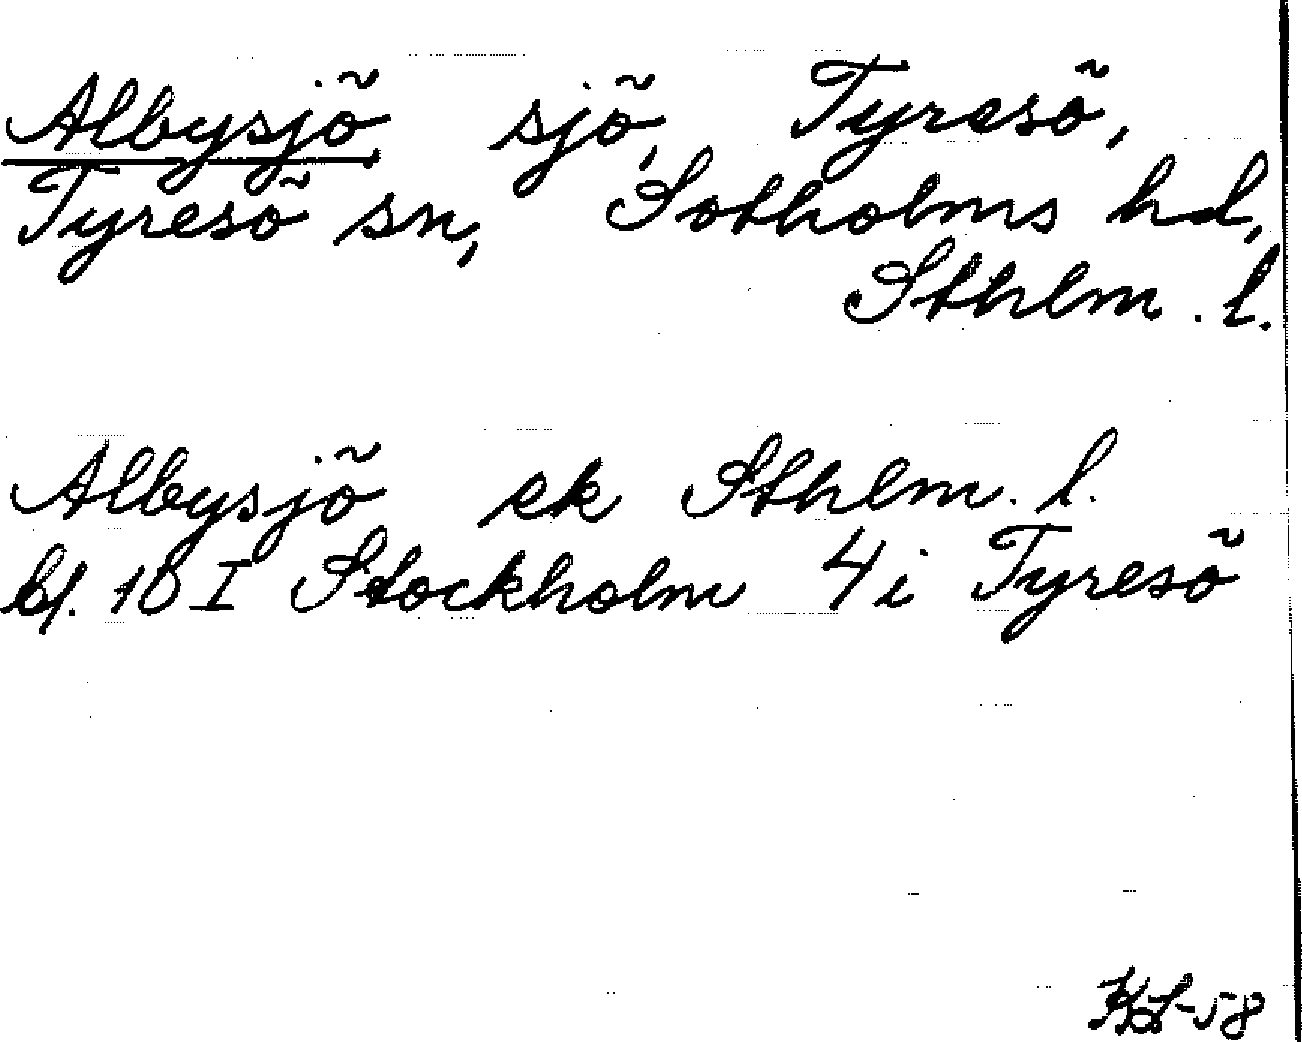 Albysjö sjö, Tyresö,
Tyresö sn, Sotholms hd,
Sthlm. l.
Albysjö ek Sthlm. l.
bl. 10 I Stockholm 4 i Tyresö